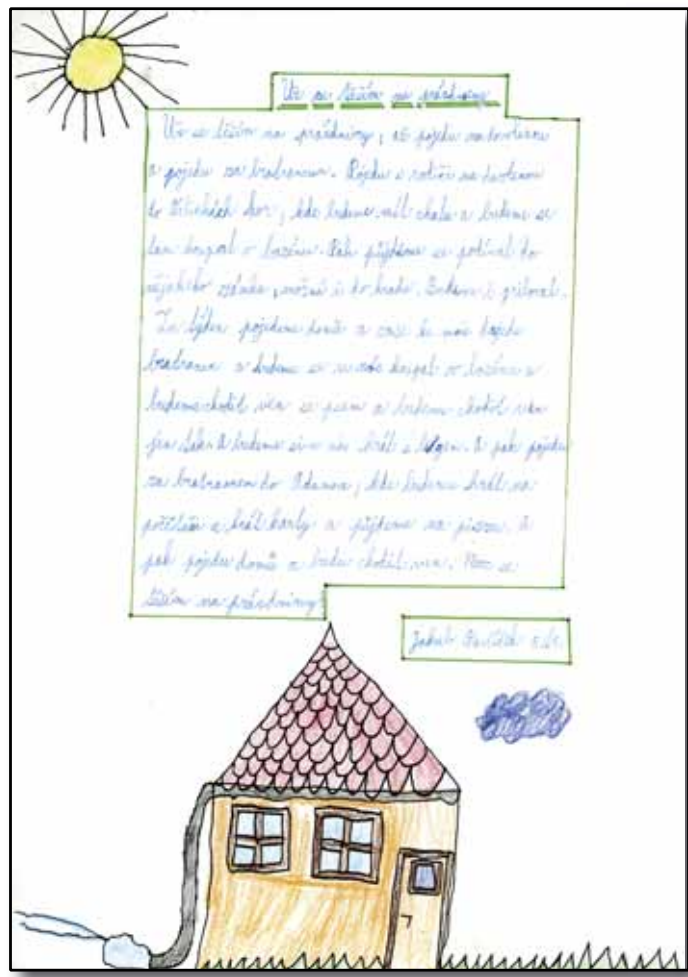 Už se těším na prázdniny
Už se těším na prázdniny, až pojedu na dovolenou
a pojedu za bratrancem. Pojedu s rodiči na dovolenou
do hor, kde budeme mít chatu a budeme se
tam koupat v bazénu. Pak půjdeme se podívat do
nějakého, možná i do hradu. Budeme i grilovat.
Za týden pojedeme domů a zase ke mně
bratranec a budeme se u nás koupat v bazénu a
budeme chodit ven se psem a budeme chodit ven
jen tak. A budeme si u nás hrát s. A pak pojedu
za bratrancem do, kde budeme hrát na
počítači a hrát karty a půjdeme na pizzu. A
pak pojedu domů a budu chodit ven. se
těším na prázdniny!
Jakub